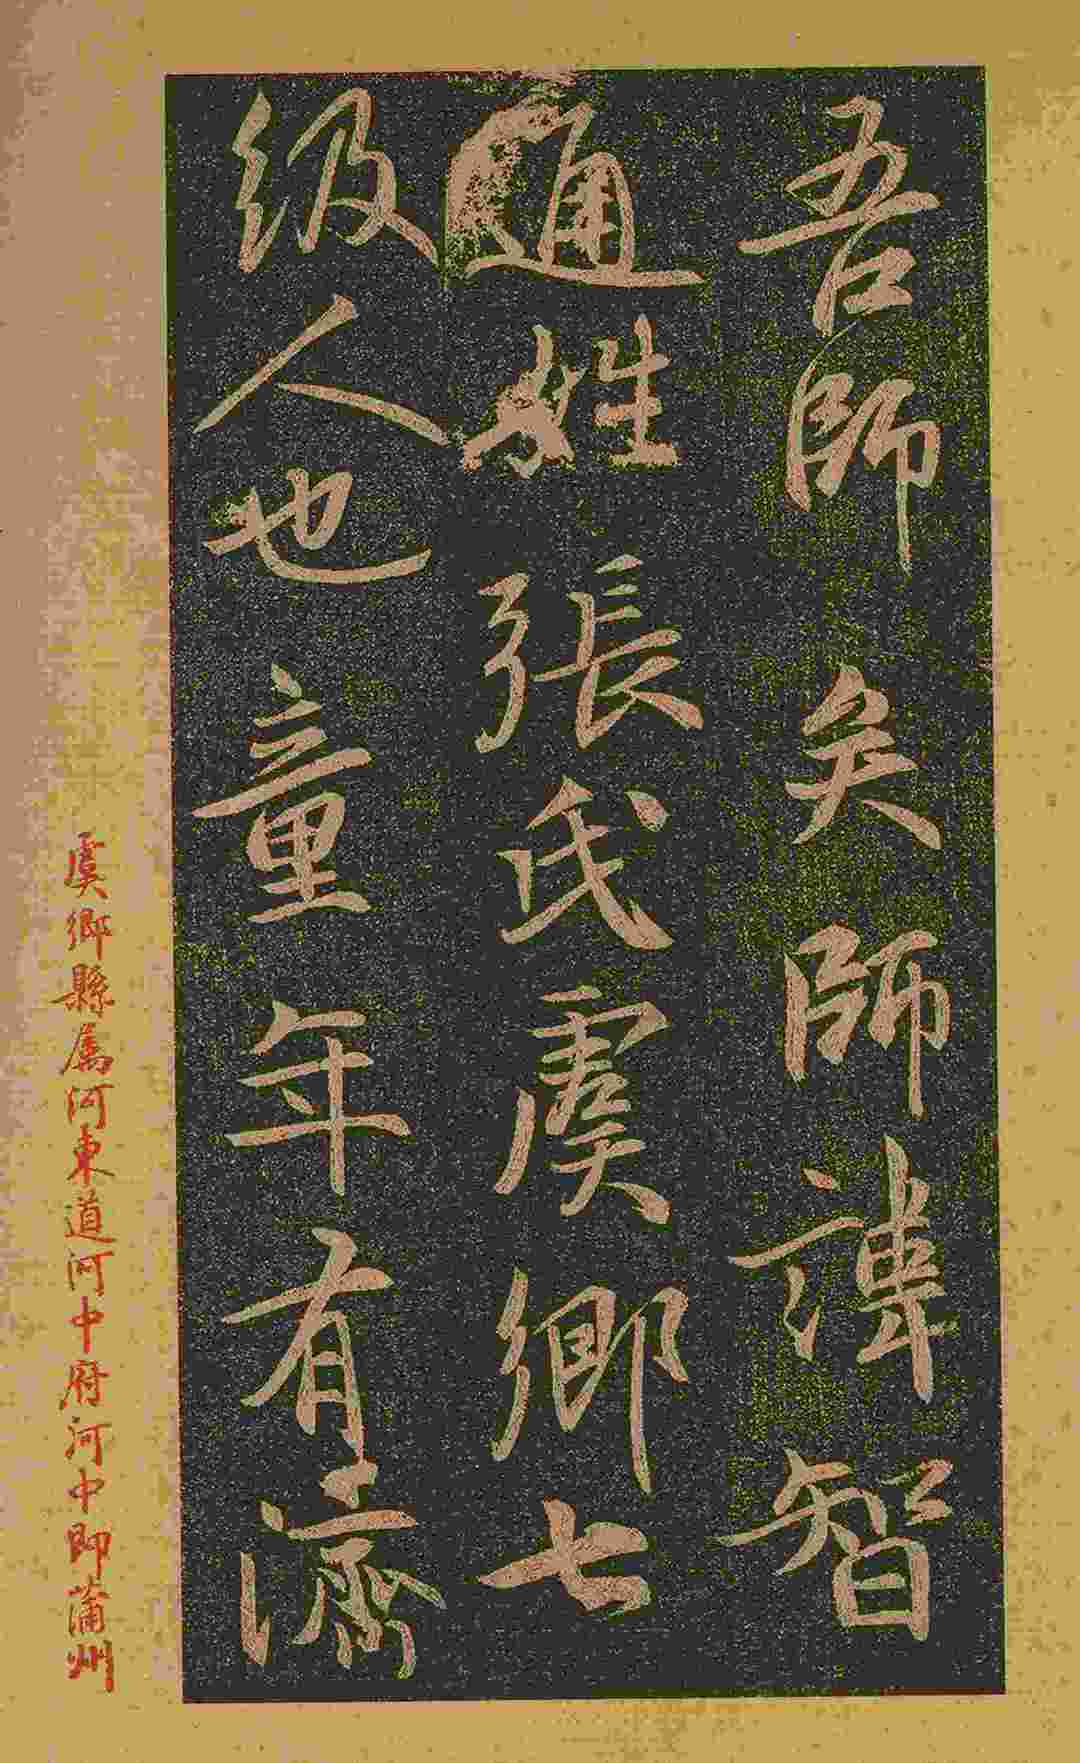 吾師矣師諱智
通姓張氏虞鄉七
級人也童年有濟
虞鄉縣屬河東道河中府河中即蒲州